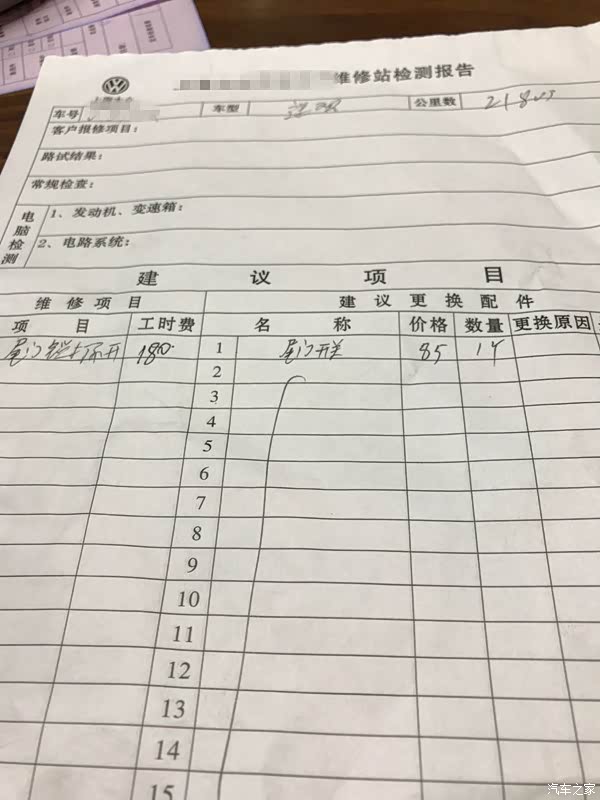 维修站检测报告
车号 车型 公里数
客户报修项目：
路试结果：
常规检查：
电脑检测
1、发动机、变速箱：
2、电路系统：
建议项目
维修项目 建议更换配件
项目 工时费 名称 价格 数量 更换原因
尾门 不开 180 1 尾门开关 85 1个
2
3
4
5
6
7
8
9
10
11
12
13
14
15
汽车之家